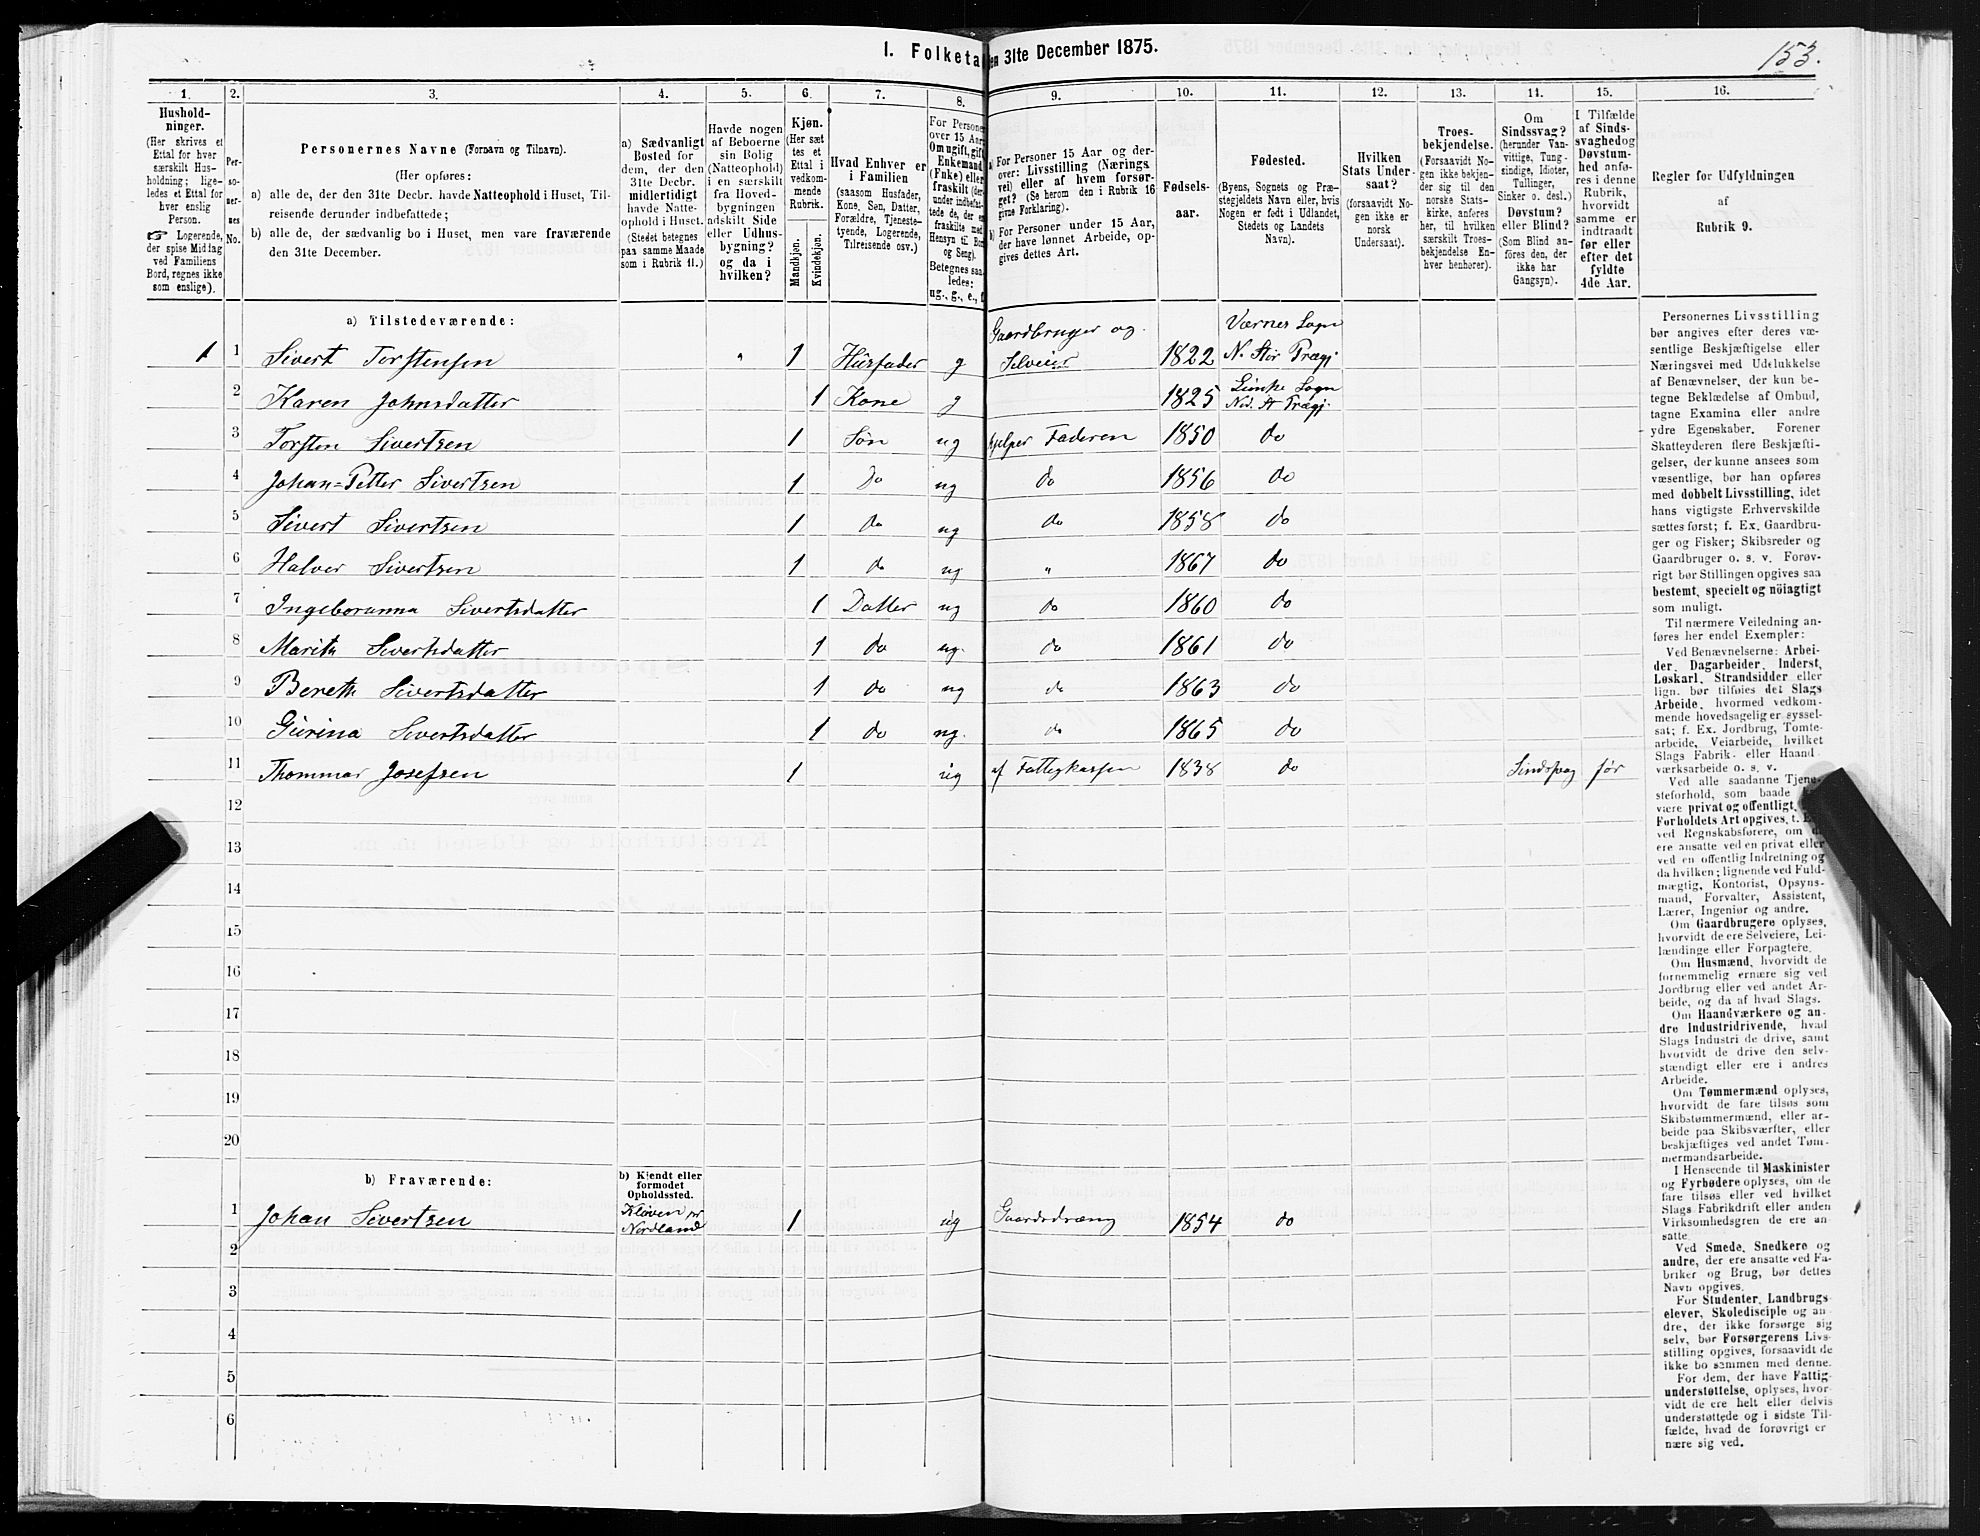 1. Folketal den 31te December 1875.
153.
1.
2.
3.
4.
5.
6.
7.
8.
9.
10.
11.
12.
13.
14.
15.
16.
Hushold-
ninger.
(Her skrives et
Ettal for hver
særskilt Hus-
holdning; lige-
ledes et Ettal for
hver enslig
Person.
☞ Logerende,
der spise Middag
ved Familiens
Bord, regnes ikke
som enslige).
Per-
so-
ner-
nes
No.
Personernes Navne (Fornavn og Tilnavn).
(Her opføres:
a) alle de, der den 31te Decbr. havde Natteophold i Huset, Til-
reisende derunder indbefattede;
b) alle de, der sædvanlig bo i Huset, men vare fraværende
den 31te December.
a) Sædvanligt
Bosted for
dem, der den
31te Decbr.
midlertidigt
havde Natte-
ophold i Huset.
(Stedet betegnes
paa samme Maade
som i Rubrik 11.)
Havde nogen
af Beboerne
sin Bolig
(Natteophold)
i en særskilt
fra Hoved-
bygningen
adskilt Side
eller Udhus-
bygning?
og da i
hvilken?
Kjøn.
(Her sæt
tes et
Ettal i
vedkom-
mende
Rubrik.
Mandkjøn.
Kvindekjøn.
Hvad Enhver er
i Familien
(saasom Husfader,
Kone, Søn, Datter,
Forældre, Tjeneste-
tyende, Logerende,
Tilreisende osv.)
For Personer
over 15 Aar:
Om ugift, gift,
Enkemand
(Enke) eller
fraskilt (der-
under indbefat-
tede de, der ere
fraskilte med
Hensyn til Bord
og Seng).
Betegnes saa-
ledes:
ug., g., e., f.
a) For Personer 15 Aar og der-
over: Livsstilling (Nærings-
vei) eller af hvem forsør-
get? (Se herom den i Rubrik 16
givne Forklaring).
b) For Personer under 15 Aar,
der have lønnet Arbeide, op-
gives dettes Art.
Fødsels-
aar.
Fødested.
(Byens, Sognets og Præ-
stegjeldets Navn eller, hvis
Nogen er født i Udlandet,
Stedets og Landets
Navn).
Hvilken
Stats Under-
saat?
(forsaavidt No-
gen ikke er
norsk
Undersaat).
Troes-
bekjendelse.
(Forsaavidt No-
gen ikke bekjen-
der sig til den
norske Stats-
kirke, anføres
her, til hvilken
særskilt Troes-
bekjendelse En-
hver henhører).
Om
Sindssvag?
(herunder Van-
vittige, Tung-
sindige, Idioter,
Tullinger,
Sinker o. desl.)
Døvstum?
eller Blind?
(Som Blind an-
føres den, der
ikke har
Gangsyn).
I Tilfælde
af Sinds-
svaghed og
Døvstum-
hed anfø-
res i denne
Rubrik,
hvorvidt
samme er
indtraadt
før eller
efter det
fyldte
4de Aar.
Regler for Udfyldningen
af
Rubrik 9.
a) Tilstedeværende:
1 1 Sivert Torstensen 1 Husfader g Gaardbruger og Selveier 1822 Værnes Sogn N. Stør Præg.
2 Karen Johnsdatter 1 Kone g 1825 Leinke Sogn Ned. St Prægj.
3 Torsten Sivertsen 1 Søn ug hjelper Faderen 1850 do
4 Johan-Petter Sivertsen 1 Do ug do 1856 do
5 Sivert Sivertsen 1 do ug do 1858 do
6 Halver Sivertsen 1 do ug " 1867 do
7 Ingeboranna Sivertsdatter 1 Datter ug do 1860 do
8 Marith Sivertsdatter 1 do ug. do 1861 do
9 Bereth Sivertsdatter 1 do ug do 1863 do
10 Gurina Sivertsdatter 1 do ug. do 1865 do
11 Thommas Josefsen 1 ug af Fattigkassen 1838 do Sindsvag før
12
13
14
15
16
17
18
19
20
b) Fraværende:
b) Kjendt eller
formodet
Opholdssted.
1 Johan Sivertsen Kløven pr Nordland 1 ug Gaardsdræng 1854 do
2
3
4
5
6
Personernes Livsstilling
bør angives efter deres væ-
sentlige Beskjæftigelse eller
Næringsvei med Udelukkelse
af Benævnelser, der kun be-
tegne Beklædelse af Ombud,
tagne Examina eller andre
ydre Egenskaber. Forener
Skatteyderen flere Beskjæfti-
gelser, der kunne ansees som
væsentlige, bør han opføres
med dobbelt Livsstilling, idet
hans vigtigste Erhvervskilde
sættes først; f. Ex. Gaardbru-
ger og Fisker; Skibsreder og
Gaardbruger o. s. v. Forøv-
rigt bør Stillingen opgives saa
bestemt, specielt og nöiagtigt
som muligt.
Til nærmere Veiledning an-
føres her endel Exempler:
Ved Benævnelserne: Arbei-
der, Dagarbeider, Inderst,
Løskarl, Strandsidder eller
lign. bør tilføies det Slags
Arbeide, hvormed vedkom-
mende hovedsagelig er syssel-
sat; f. Ex. Jordbrug, Tomte-
arbeide, Veiarbeide, hvilket
Slags Fabrik- eller Haand-
værksarbeide o. s. v.
Ved alle saadanne Tjene-
steforhold, som baade
være privat og offentligt,
Forholdets Art opgives, t. Ex.
ved Regnskabsførere, om de
ere ansatte ved en privat eller
ved en offentlig Indretning og
da hvilken; lignende ved Fuld-
mægtig, Kontorist, Opsyns-
mand, Forvalter, Assistent,
Lærer, Ingeniør og andre.
Om Gaardbrugere oplyses,
hvorvidt de ere Selveiere, Lei-
lændinge eller Forpagtere.
Om Husmænd, hvorvidt de
fornemmelig ernære sig ved
Jordbrug eller ved andet Ar-
beide, og da af hvad Slags.
Om Haandværkere og an-
dre Industridrivende, hvad
Slags Industri de drive, samt
hvorvidt de drive den selv-
stændigt eller ere i andres
Arbeide.
Om Tømmermænd oplyses,
hvorvidt de fare tilsøs som
Skibstømmermænd, eller ar-
beide paa Skibsværfter, eller
beskjæftiges ved andet Tøm-
mermandsarbeide.
I Henseende til Maskinister
og Fyrbødere oplyses, om de
fare tilsøs eller ved hvilket
Slags Fabrikdrift eller anden
Virksomhedsgren de ere an-
satte.
Ved Smede, Snedkere og
andre, der ere ansatte ved Fa-
briker og Brug, bør dettes
Navn opgives.
For Studenter, Landbrugs-
elever, Skoledisciple og an-
dre, der ikke forsørge sig
selv, bør Forsørgerens Livs-
stilling opgives, forsaavidt de
ikke bo sammen med denne.
For dem, der have Fattig-
understøttelse, oplyses, hvor-
vidt de ere helt eller delvis
understøttede og i sidste Til-
fælde, hvad de forøvrigt er-
nære sig ved.